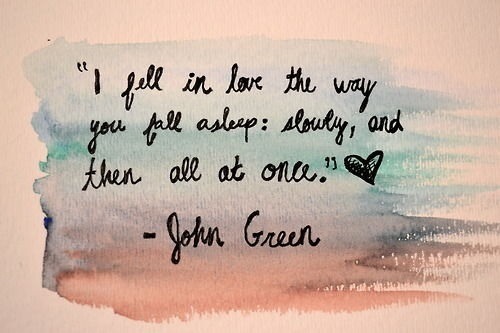 "I fell in love the way
you fall asleep: slowly, and
then all at once."
- John Green